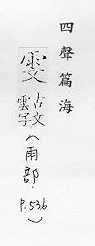 四聲篇海
古文
雲字
(雨部.
P.536)